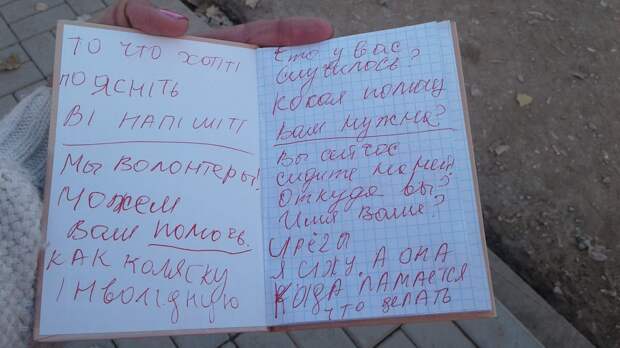 ТО ЧТО ХОТІТІ
ПО ЯСНІТЬ
ВІ НАПІШІТІ
Мы волонтеры!
Можем
Вам помочь.
КАК КОЛЯСКУ
ІНВОЛІДНУЮ
Что у вас
случилось?
Какая помощ
вам нужна?
Вы сейчас
сидите
Откуда вы?
Имя Ваше?
Я СІЖУ. А ОНА
КОГДА ЛАМАЕТСЯ
ЧТО ДЕЛАТЬ